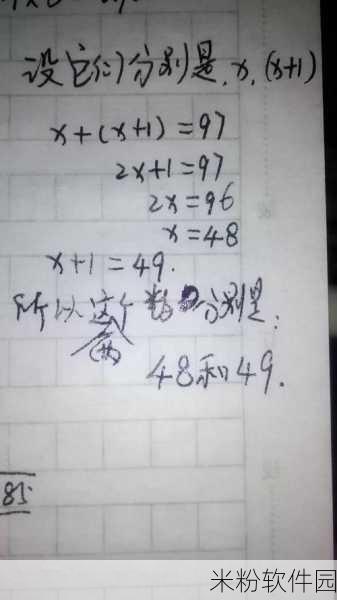 设它们分别是x,(x+1)
x+(x+1)=97
2x+1=97
2x=96
x=48
x+1=49.
所以这个数分别是:
(两)
48和49.
85
米粉软件园